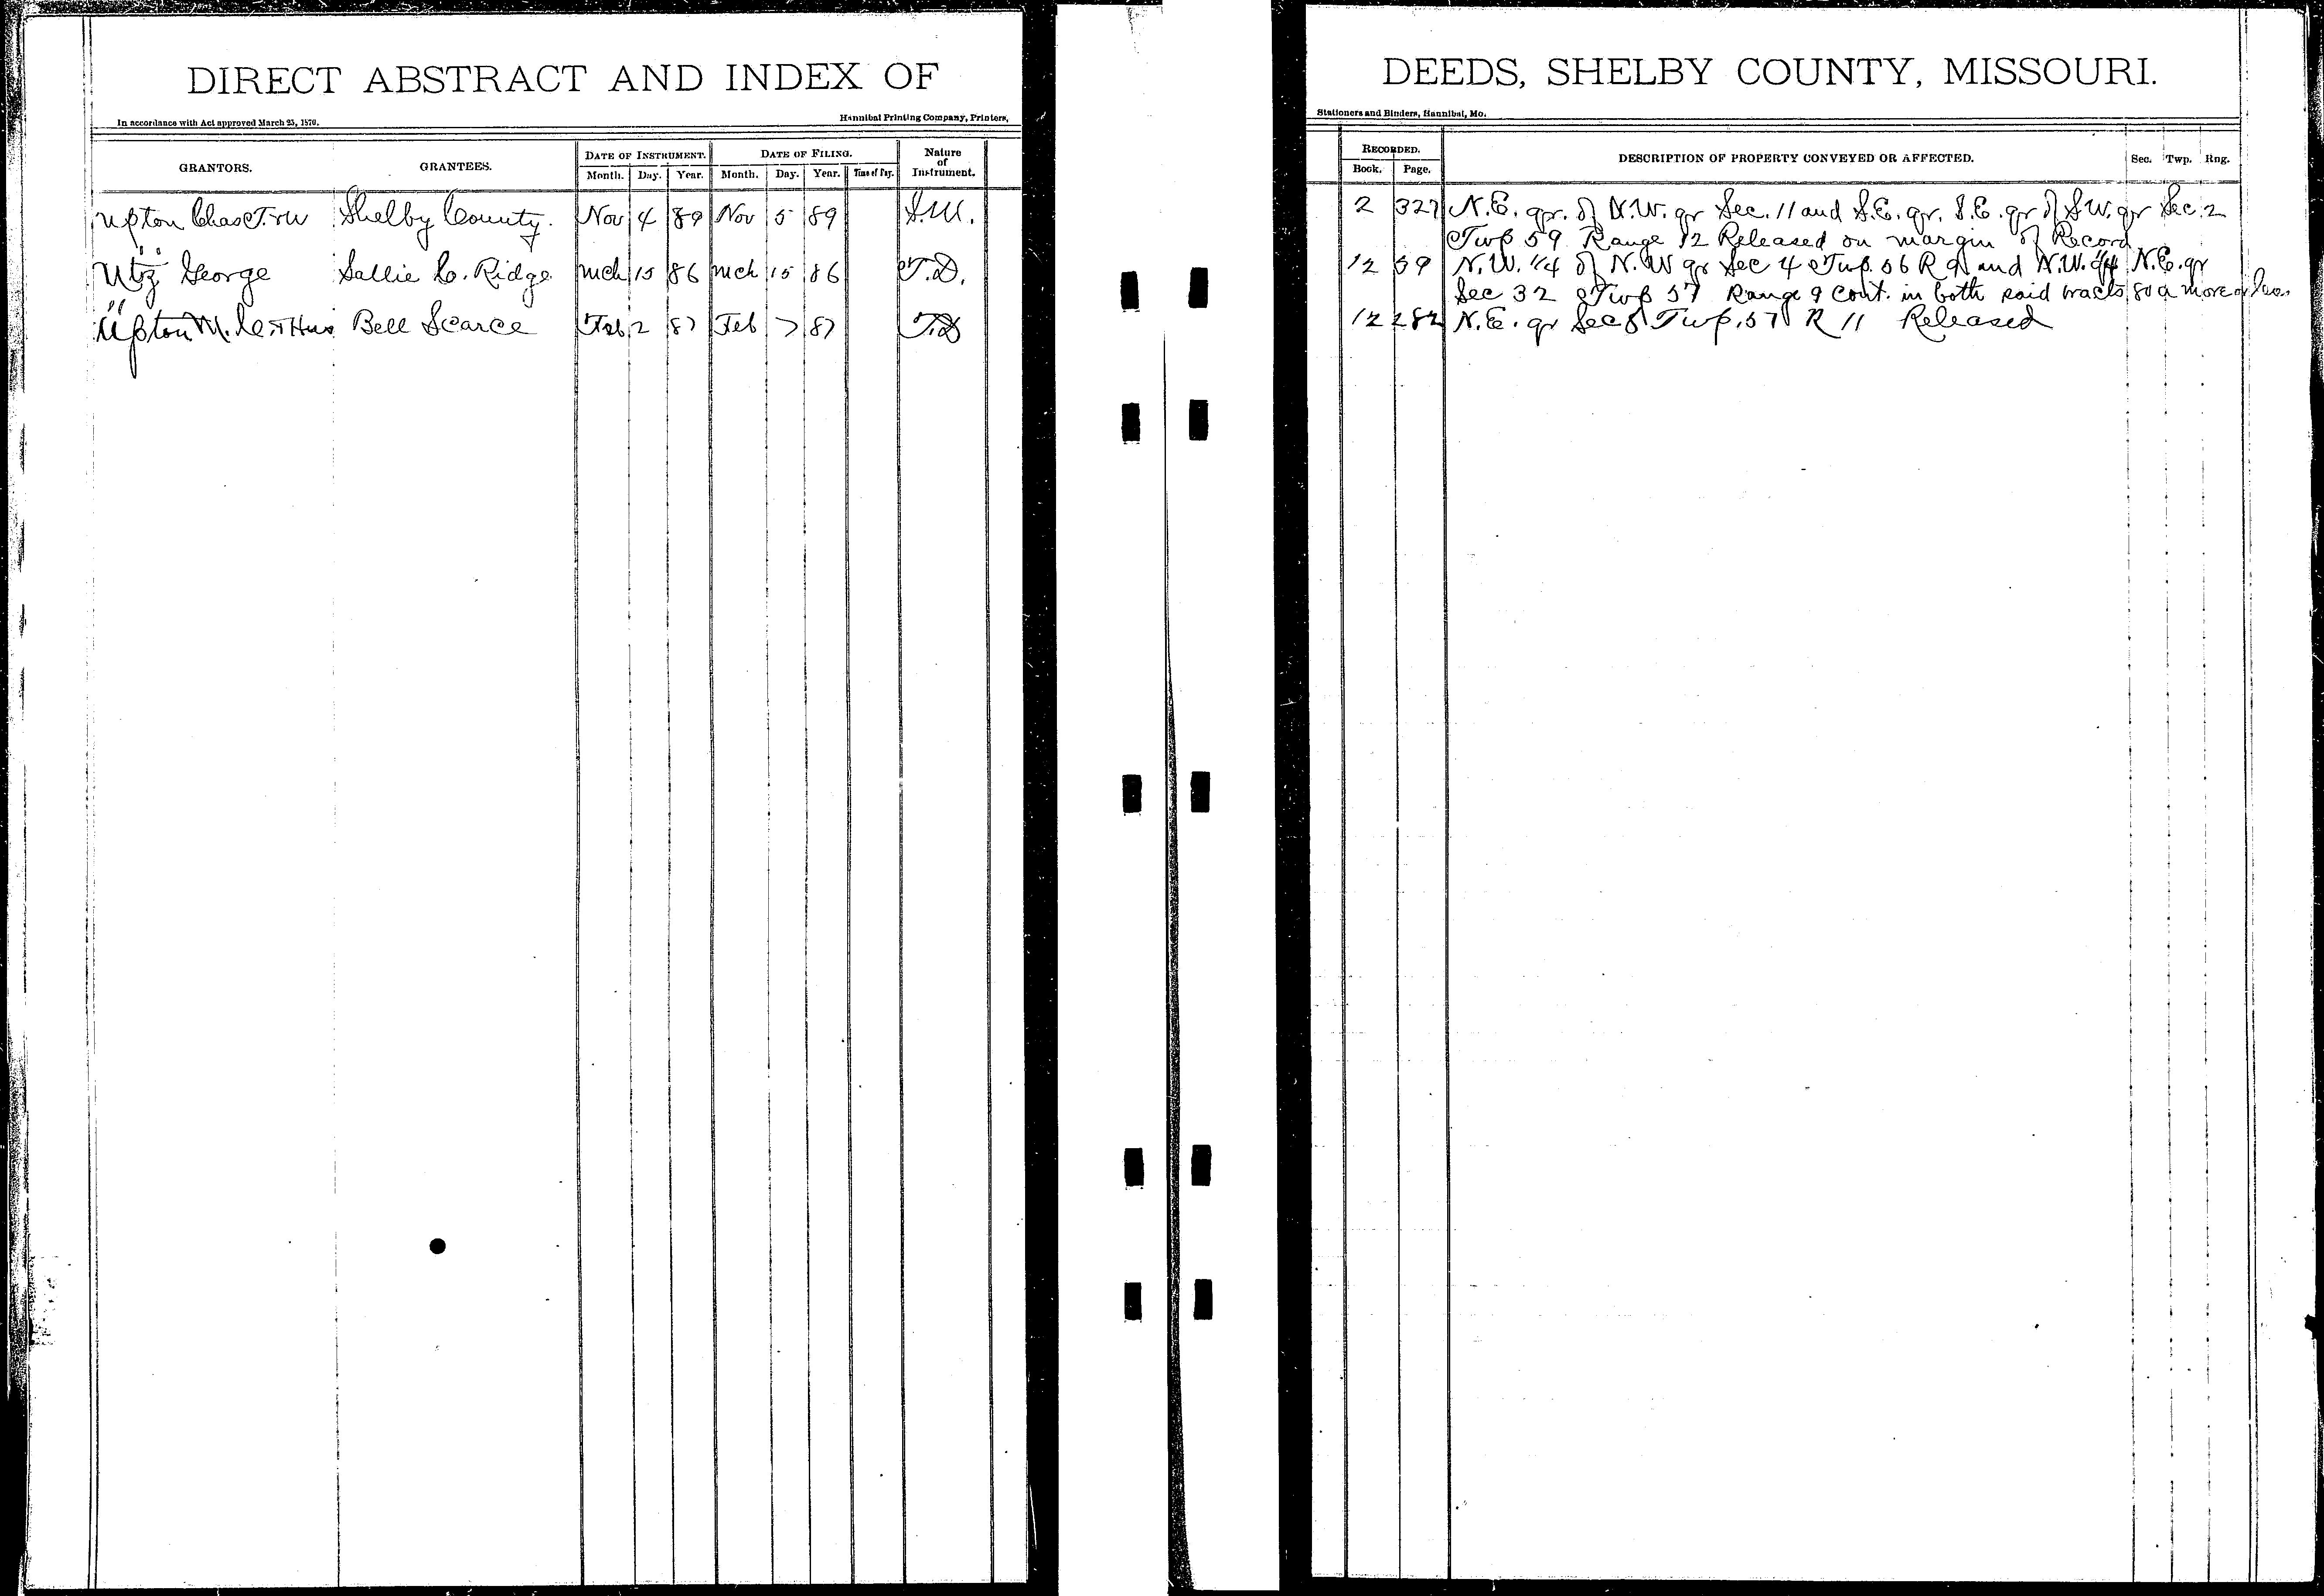 DIRECT ABSTRACT AND INDEX OF
DEEDS, SHELBY COUNTY, MISSOURI.
In accordance with Act approved March 25, 1870.
Hannibal Printing Company, Printers,
Stationers and Binders, Hannibal, Mo.
GRANTORS. GRANTEES. DATE OF INSTRUMENT. DATE OF FILING. Nature of Instrument.
Month. Day. Year. Month. Day. Year. Time of Day.
RECORDED. DESCRIPTION OF PROPERTY CONVEYED OR AFFECTED. Sec. Twp. Rng.
Book. Page.
Upton Chas T. & W Shelby County. Nov 4 89 Nov 5 89 2 327 N.E. qr. of N.W. qr Sec. 11 and S.E. qr. S.E. qr of S.W. qr Sec. 2
Twp 59 Range 12 Released on margin of Record
Utz George Sallie C. Ridge Mch 15 86 Mch 15 86 T.D. 12 59 N.W. 1/4 of N.W qr Sec 4 Twp. 56 R 9 and N.W. 1/4 N.E. qr
Sec 32 Twp 57 Range 9 Cont. in both said tracts 80 a more or less
Upton M. & Hus Bell Scarce Feb 2 87 Feb 7 87 T.D 12 282 N.E. qr Sec 8 Twp. 57 R 11 Released